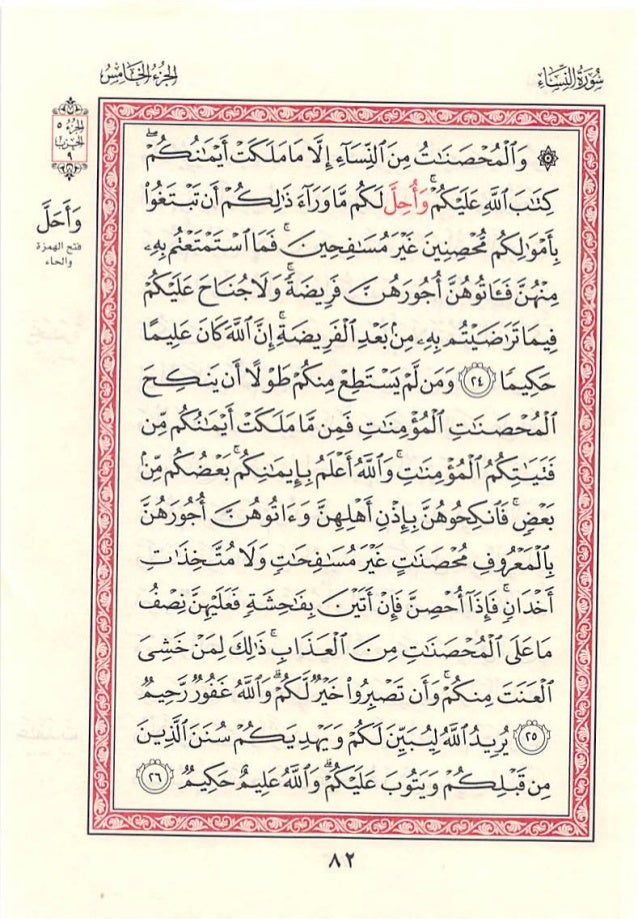 سُورَةُ النِّسَاءِ
الجُزْءُ الخَامِسُ
الجزء ٥
الحزب
٩
وَأَحَلَّ
فتح الهمزة
والحاء
۞ وَٱلْمُحْصَنَٰتُ مِنَ ٱلنِّسَآءِ إِلَّا مَا مَلَكَتْ أَيْمَٰنُكُمْۖ
كِتَٰبَ ٱللَّهِ عَلَيْكُمْۚ وَأُحِلَّ لَكُم مَّا وَرَآءَ ذَٰلِكُمْ أَن تَبْتَغُوا۟
بِأَمْوَٰلِكُم مُّحْصِنِينَ غَيْرَ مُسَٰفِحِينَۚ فَمَا ٱسْتَمْتَعْتُم بِهِۦ
مِنْهُنَّ فَـَٔاتُوهُنَّ أُجُورَهُنَّ فَرِيضَةًۚ وَلَا جُنَاحَ عَلَيْكُمْ
فِيمَا تَرَٰضَيْتُم بِهِۦ مِنۢ بَعْدِ ٱلْفَرِيضَةِۚ إِنَّ ٱللَّهَ كَانَ عَلِيمًا
حَكِيمًا ٢٤ وَمَن لَّمْ يَسْتَطِعْ مِنكُمْ طَوْلًا أَن يَنكِحَ
ٱلْمُحْصَنَٰتِ ٱلْمُؤْمِنَٰتِ فَمِن مَّا مَلَكَتْ أَيْمَٰنُكُم مِّن
فَتَيَٰتِكُمُ ٱلْمُؤْمِنَٰتِۚ وَٱللَّهُ أَعْلَمُ بِإِيمَٰنِكُمۚ بَعْضُكُم مِّنۢ
بَعْضٍۚ فَٱنكِحُوهُنَّ بِإِذْنِ أَهْلِهِنَّ وَءَاتُوهُنَّ أُجُورَهُنَّ
بِٱلْمَعْرُوفِ مُحْصَنَٰتٍ غَيْرَ مُسَٰفِحَٰتٍ وَلَا مُتَّخِذَٰتِ
أَخْدَانٍۚ فَإِذَآ أُحْصِنَّ فَإِنْ أَتَيْنَ بِفَٰحِشَةٍ فَعَلَيْهِنَّ نِصْفُ
مَا عَلَى ٱلْمُحْصَنَٰتِ مِنَ ٱلْعَذَابِۚ ذَٰلِكَ لِمَنْ خَشِىَ
ٱلْعَنَتَ مِنكُمْۚ وَأَن تَصْبِرُوا۟ خَيْرٌ لَّكُمْۗ وَٱللَّهُ غَفُورٌ رَّحِيمٌ
٢٥ يُرِيدُ ٱللَّهُ لِيُبَيِّنَ لَكُمْ وَيَهْدِيَكُمْ سُنَنَ ٱلَّذِينَ
مِن قَبْلِكُمْ وَيَتُوبَ عَلَيْكُمْۗ وَٱللَّهُ عَلِيمٌ حَكِيمٌ ٢٦
٨٢